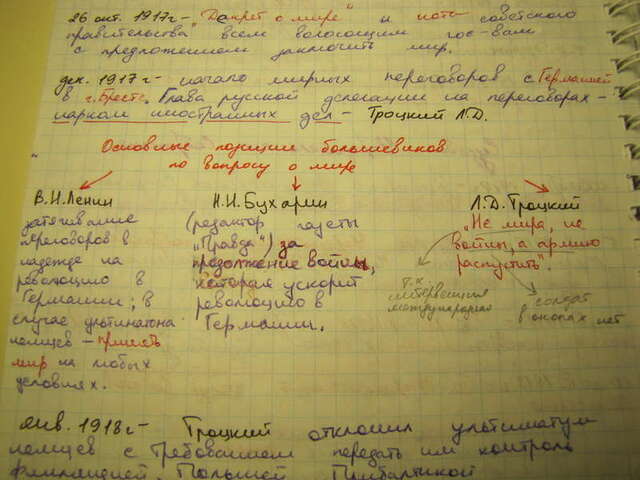 26 окт. 1917г – "Декрет о мире" и нота советского
правительства всем воюющим гос-вам
с предложением заключить мир.
дек. 1917 г – начало мирных переговоров с Германией
в г. Бресте. Глава русской делегации на переговорах –
нарком иностранных дел – Троцкий Л.Д.
Основные позиции большевиков
по вопросу о мире
В.И.Ленин
затягивание
переговоров в
надежде на
революцию в
Германии; в
случае ультиматума
немцев – принять
мир на любых
условиях.
Н.И.Бухарин
(редактор газеты
"Правда") за
продолжение войны,
которая ускорит
революцию в
Германии.
Л.Д.Троцкий
"Ни мира, ни
войны, а армию
распустить".
т.к
интервенция
международная
солдат
в окопах нет
янв. 1918г – Троцкий отклонил ультиматум
немцев с требованием передать им контроль
Финляндией, Польшей, Прибалтикой